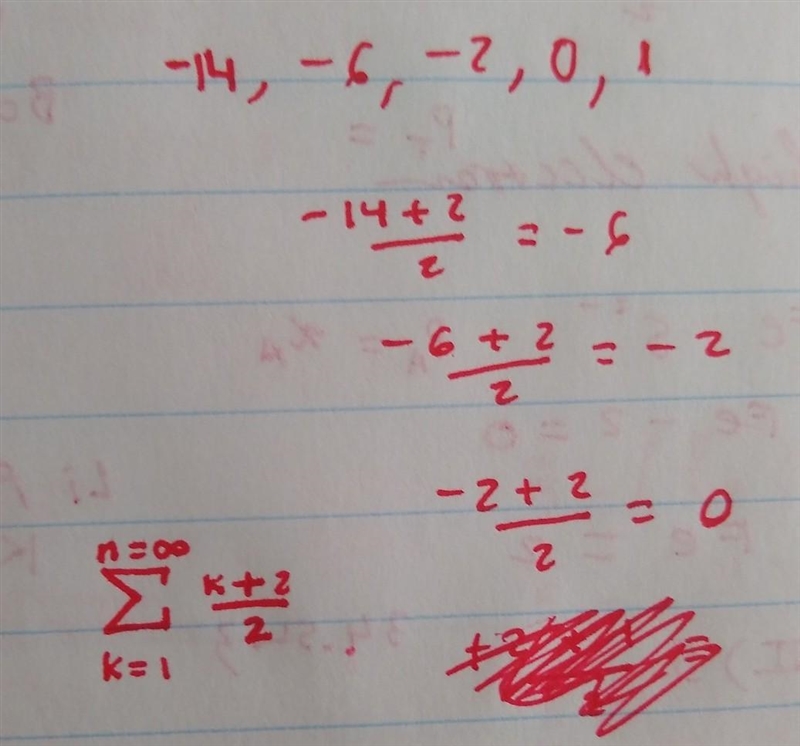 -14, -6, -2, 0, 1
-14 + 2 / 2 = -6
-6 + 2 / 2 = -2
-2 + 2 / 2 = 0
n=∞
∑ k+2 / 2
k=1